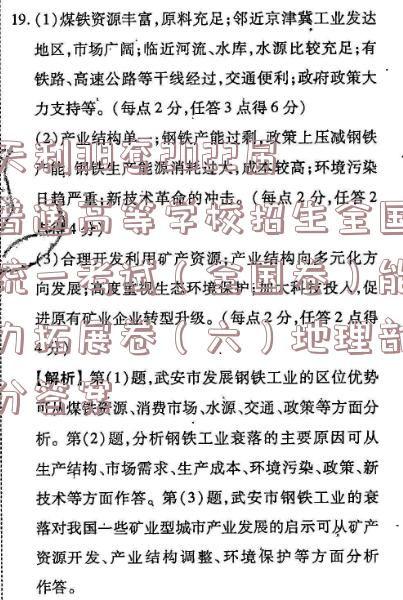 19. (1)煤铁资源丰富,原料充足;邻近京津冀工业发达
地区,市场广阔;临近河流、水库,水源比较充足;有
铁路、高速公路等干线经过,交通便利;政府政策大
力支持等。(每点2分,任答3点得6分)
(2)产业结构单一;钢铁产能过剩,政策上压减钢铁
产能,钢铁生产能源消耗过大,成本较高;环境污染
日趋严重;新技术革命的冲击。(每点2分,任答2
点得4分)
(3)合理开发利用矿产资源;产业结构向多元化方
向发展;高度重视生态环境保护;加大科技投入,促
进原有矿业企业转型升级。(每点2分,任答2点得
4分)
【解析】第(1)题,武安市发展钢铁工业的区位优势
可从煤铁资源、消费市场、水源、交通、政策等方面分
析。第(2)题,分析钢铁工业衰落的主要原因可从
生产结构、市场需求、生产成本、环境污染、政策、新
技术等方面作答。第(3)题,武安市钢铁工业的衰
落对我国一些矿业型城市产业发展的启示可从矿产
资源开发、产业结构调整、环境保护等方面分析
作答。
天利38套2022届
普通高等学校招生全国
统一考试(全国卷)能
力拓展卷(六)地理部
分答案